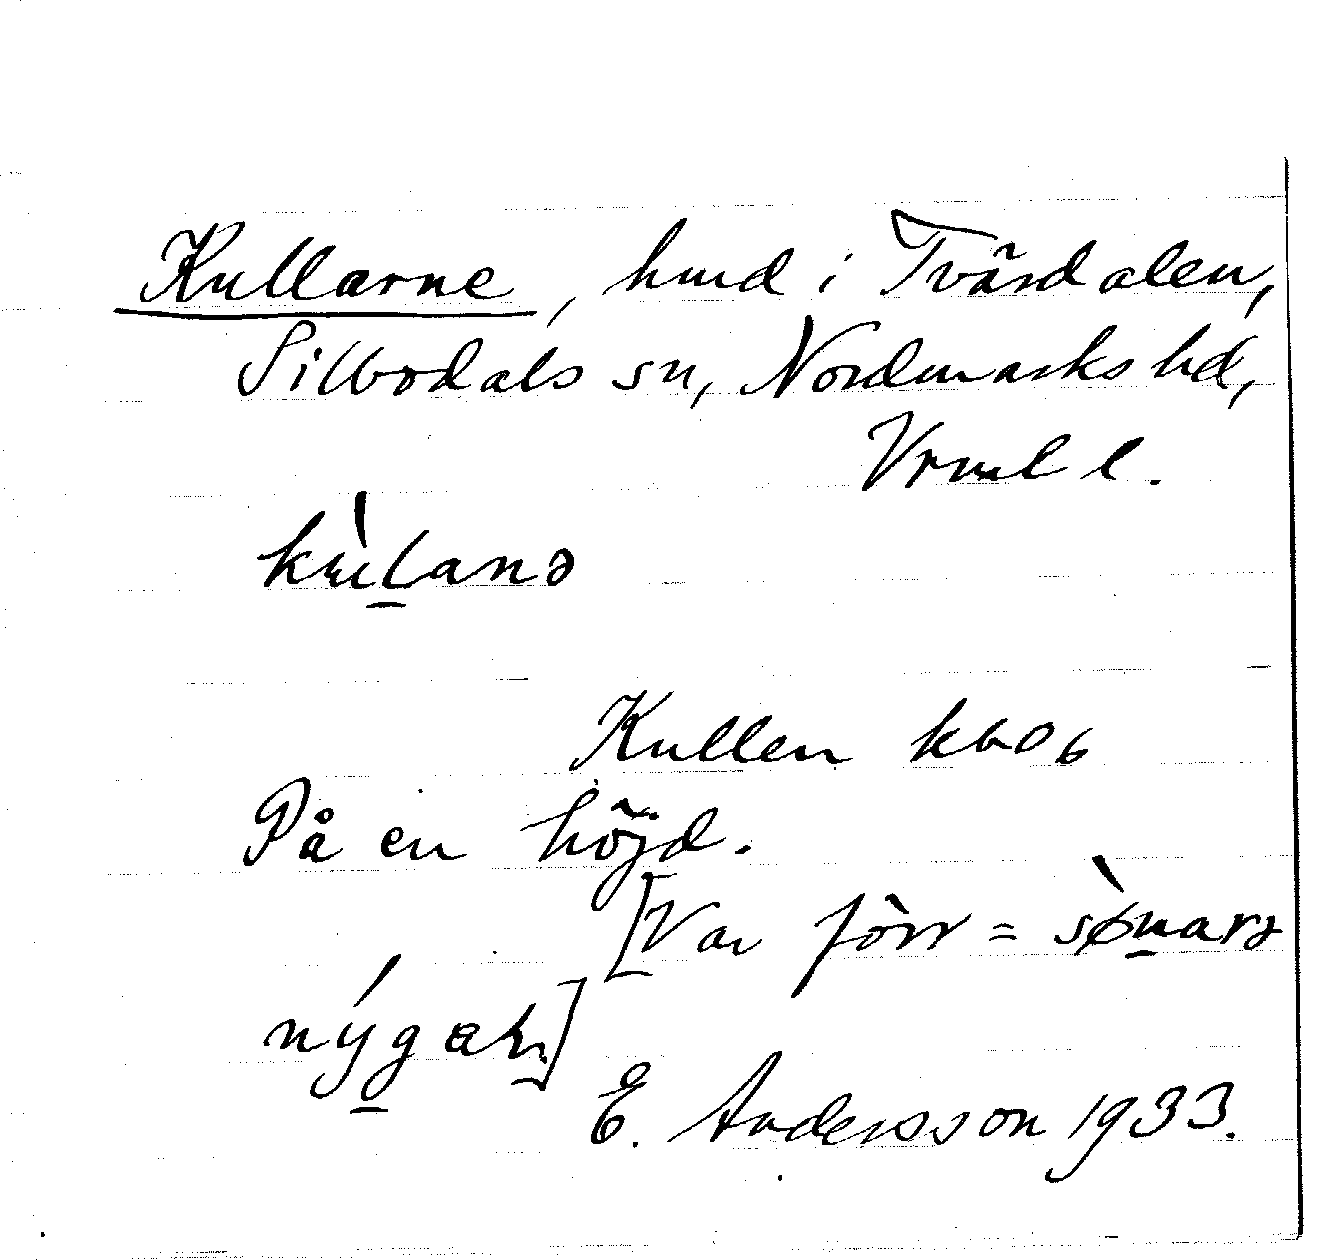 Kullarne, hmd i Tvärdalen,
Silbodals sn, Nordmarks hd,
Vrml l.
kùlanə
Kullen kbo 6
På en höjd.
[Var förr = sònarə
nýgaḷ.]
E. Andersson 1933.